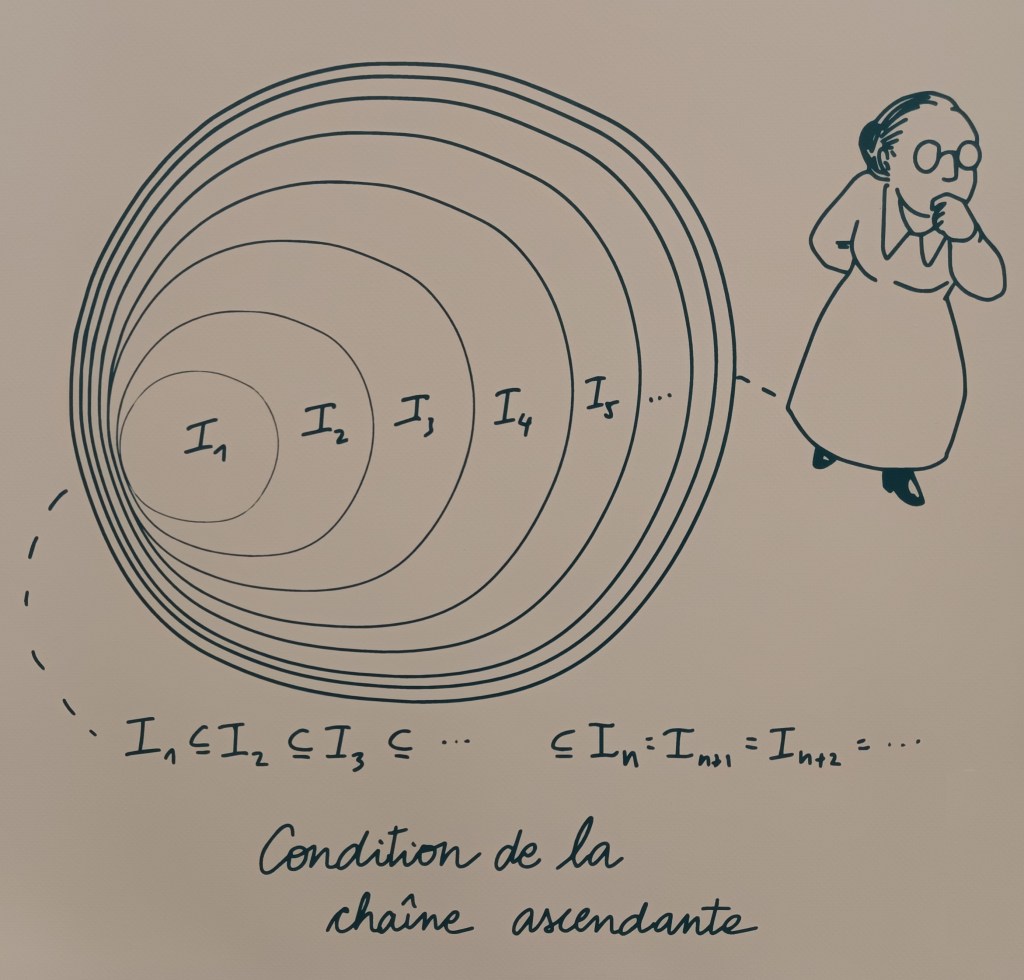 I₁ I₂ I₃ I₄ I₅ ...
I₁ ⊆ I₂ ⊆ I₃ ⊆ ... ⊆ Iₙ = Iₙ₊₁ = Iₙ₊₂ = ...
Condition de la
chaîne ascendante